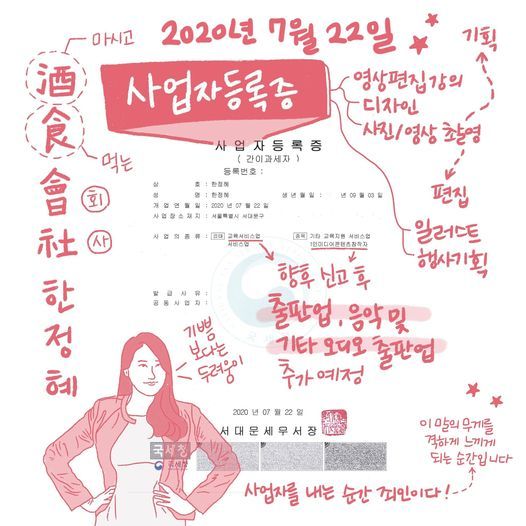 2020년 7월 22일
마시고
酒
食
먹는
會
회
社
사
한
정
혜
사업자등록증
영상편집강의
디자인
사진/영상 촬영
기획
편집
일러스트
행사기획
사업자등록증
( 간이과세자 )
등록번호 :
상 호 : 한정혜
성 명 : 한정혜 생 년 월 일 : 년 09 월 03 일
개 업 연 월 일 : 2020 년 07 월 22 일
사 업 장 소 재 지 : 서울특별시 서대문구
사 업 의 종 류 : 업태 교육서비스업 종목 기타 교육지원 서비스업
서비스업 1인미디어콘텐츠창작자
향후 신고 후
출판업, 음악 및
기타 오디오 출판업
추가 예정
발 급 사 유 :
공 동 사 업 자 :
기쁨
보다는
두려움이
2020 년 07 월 22 일
서대문세무서장
국세청
국세청
이 말의 무게를
격하게 느끼게
되는 순간입니다
사업자를 내는 순간 죄인이다!